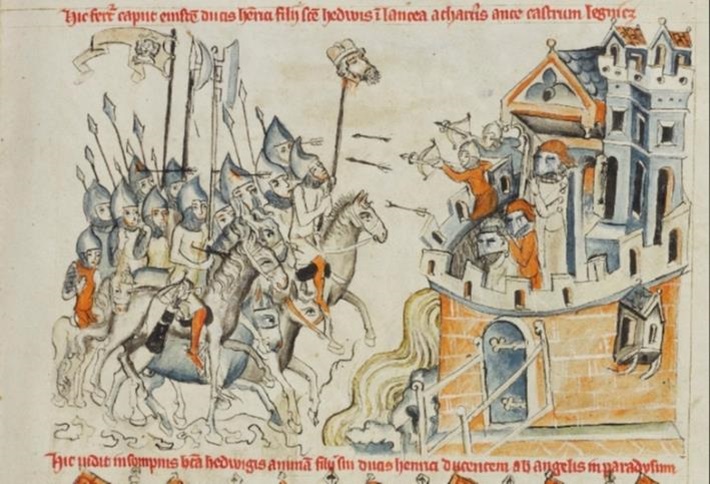 Hic fert᷑ caput eiusdē ducis hēnrici filij scē hedwis ī lancea a thartis ante castrum legnicz
Hic uidit in sompnis bēā hedwigis animā filij sui ducis henrici ducentem ab angelis in paradysum